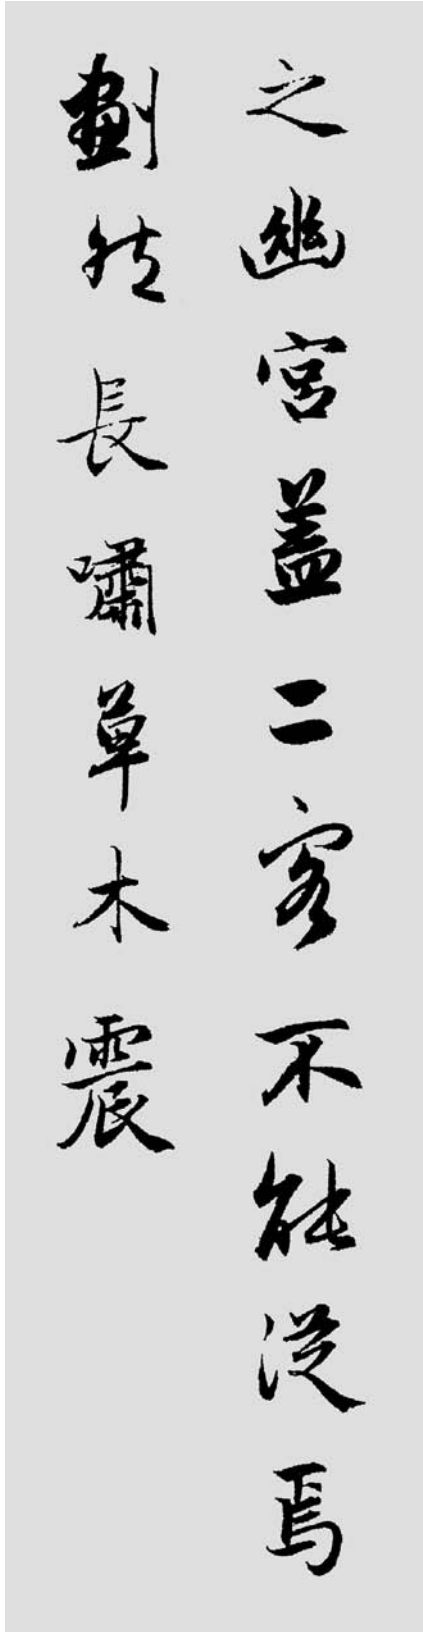 之幽宮蓋二客不能從焉
劃然長嘯草木震